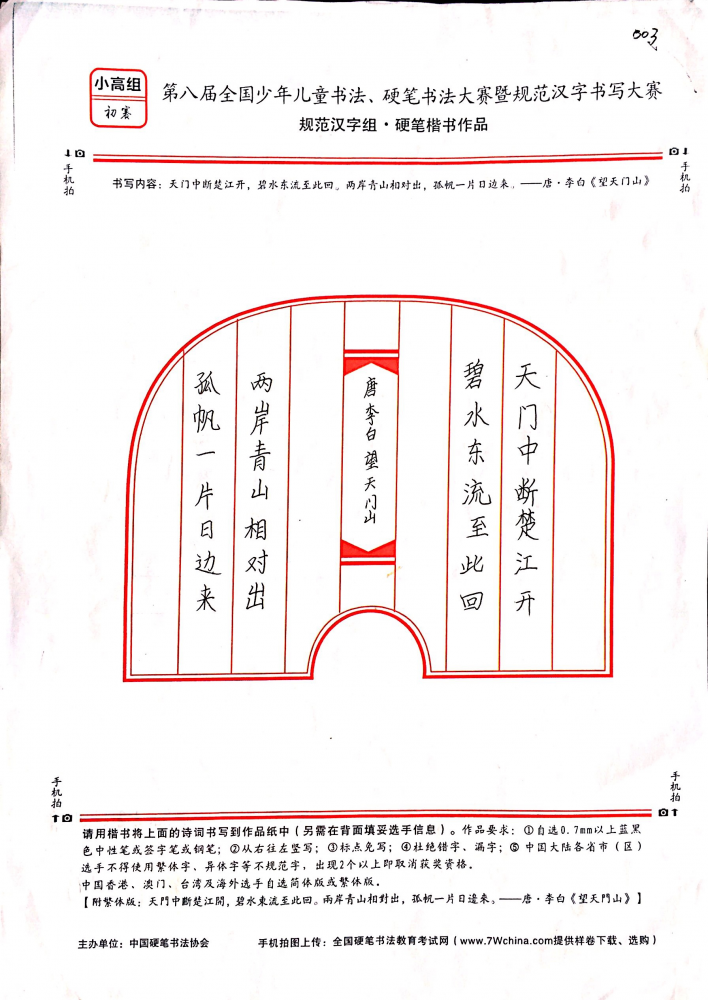 003
小高组
初赛
第八届全国少年儿童书法、硬笔书法大赛暨规范汉字书写大赛
规范汉字组·硬笔楷书作品
手机拍
手机拍
书写内容：天门中断楚江开，碧水东流至此回。两岸青山相对出，孤帆一片日边来。——唐·李白《望天门山》
天门中断楚江开
碧水东流至此回
唐李白望天门山
两岸青山相对出
孤帆一片日边来
手机拍
手机拍
请用楷书将上面的诗词书写到作品纸中（另需在背面填妥选手信息）。作品要求：①自选0.7mm以上蓝黑
色中性笔或签字笔或钢笔；②从右往左竖写；③标点免写；④杜绝错字、漏字；⑤中国大陆各省市（区）
选手不得使用繁体字、异体字等不规范字，出现2个以上即取消获奖资格。
中国香港、澳门、台湾及海外选手自选简体版或繁体版。
【附繁体版：天門中斷楚江開，碧水東流至此回。兩岸青山相對出，孤帆一片日邊來。——唐·李白《望天門山》】
主办单位：中国硬笔书法协会
手机拍图上传：全国硬笔书法教育考试网（www.7Wchina.com提供样卷下载、选购）